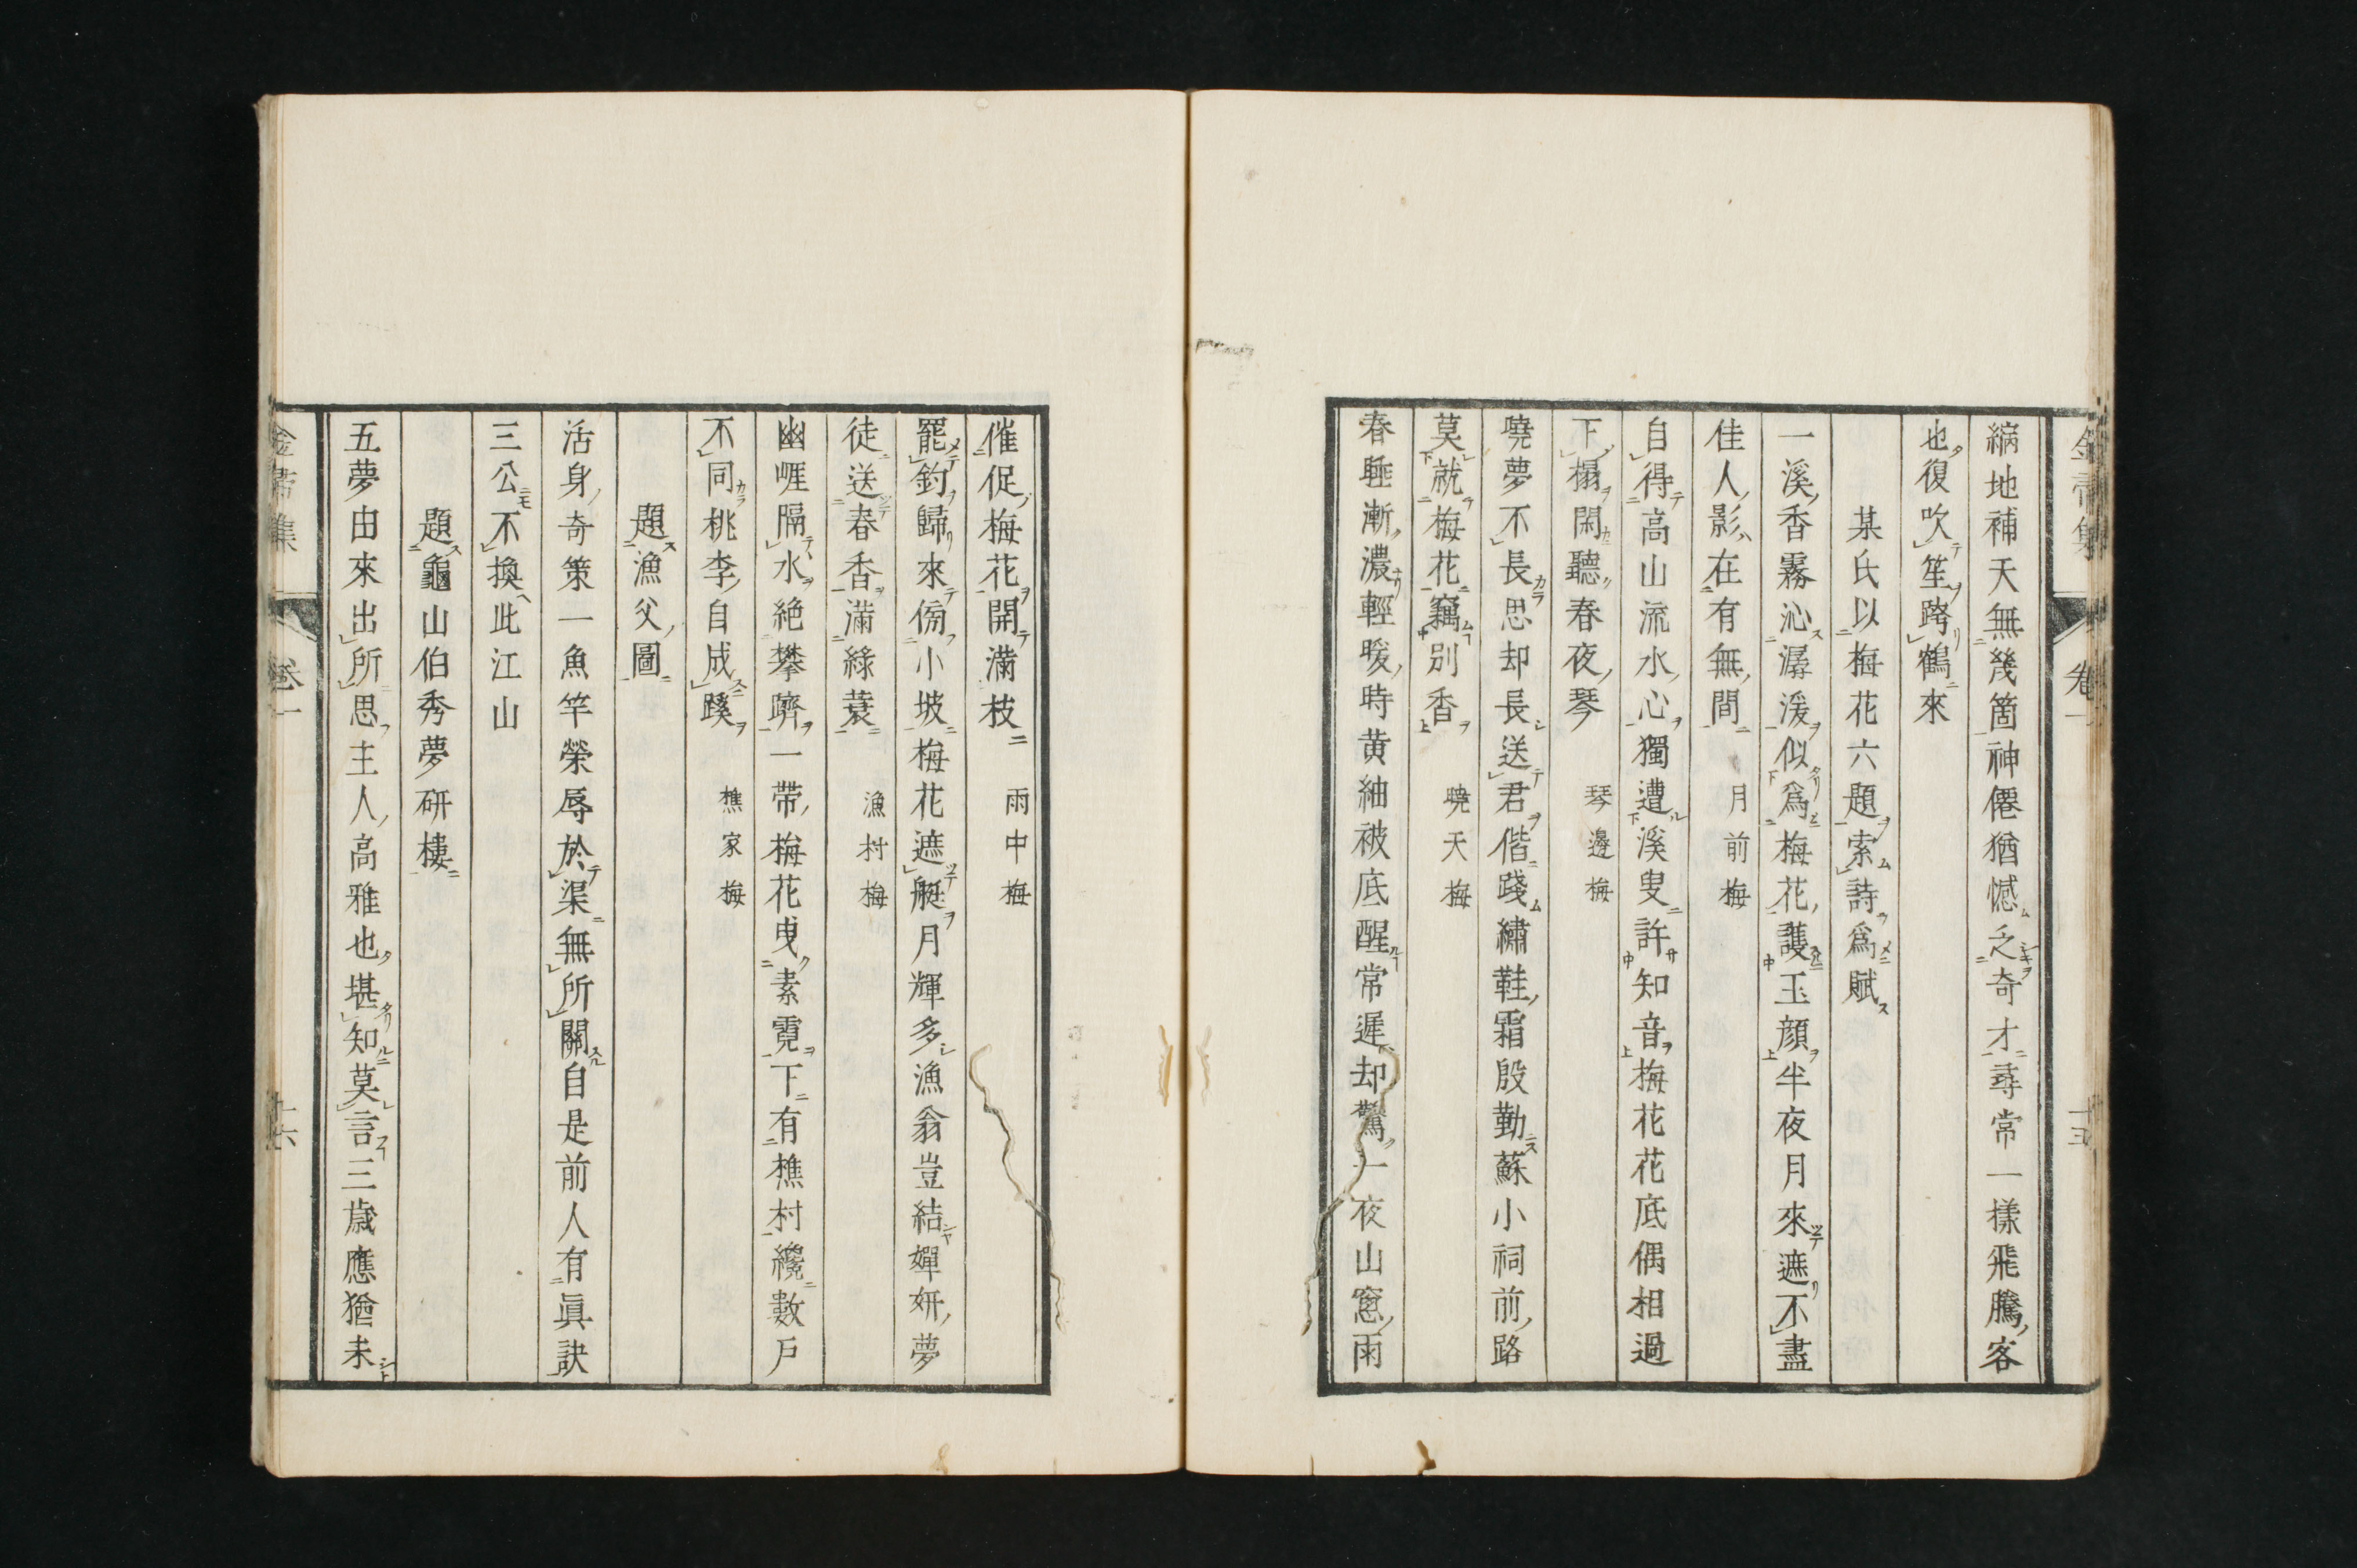 縮地補天無幾箇神僊猶憾乏奇才尋常一樣飛騰客
也復吹笙跨鶴來
某氏以梅花六題索詩爲賦
一溪香霧沁潺湲似爲梅花護玉顔半夜月來遮不盡
佳人影在有無間 月前梅
自得高山流水心獨遭溪叟許知音梅花花底偶相過
下榻閑聽春夜琴 琴邊梅
曉夢不長思却長送君偕踐繡鞋霜殷勤蘇小祠前路
莫就梅花竊別香 曉天梅
春睡漸濃輕暖時黄紬被底醒常遲却驚一夜山窓雨
催促梅花開滿枝 雨中梅
罷釣歸來傍小坡梅花遮艇月輝多漁翁豈結嬋妍夢
徒送春香滿緑蓑 漁村梅
幽崕隔水絶攀躋一帶梅花曳素霓下有樵村纔數戸
不同桃李自成蹊 樵家梅
題漁父圖
活身奇策一魚竿榮辱於渠無所關自是前人有眞訣
三公不換此江山
題龜山伯秀夢研樓
五夢由來出所思主人高雅也堪知莫言三歳應猶未
金帚集 卷一 十六